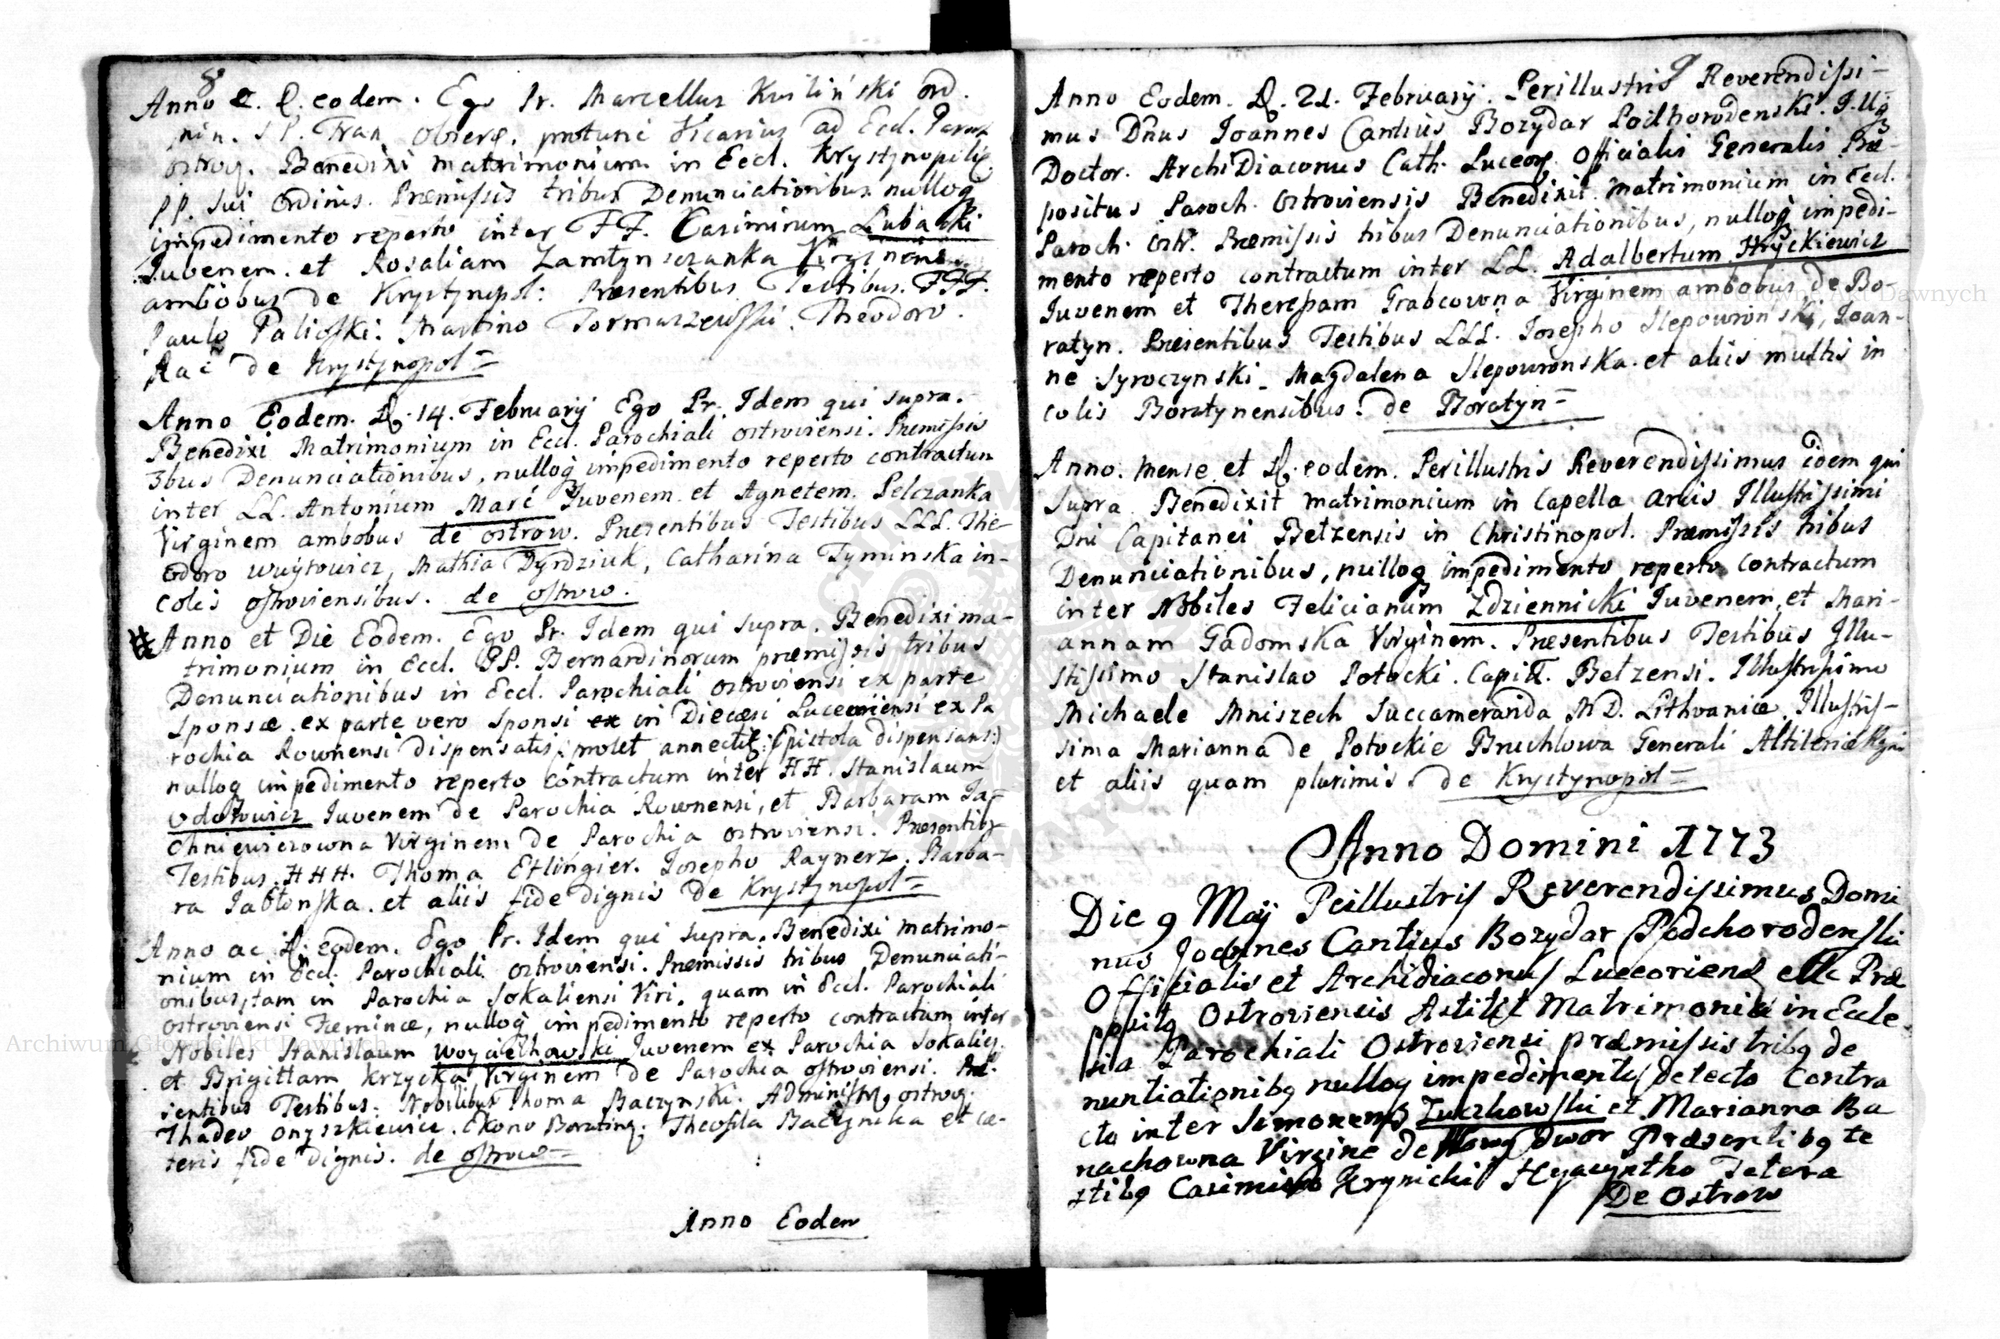 8
Anno & D. eodem. Ego Fr. Marcellus Kuiliński ord.
min. S. P. Fran. Observ. protunc Vicarius ad Eccl. Paroch.
ostrov. Benedixi matrimonium in Eccl. Krystynopoliẽ
PP. sui ordinis. Præmissis tribus Denunciationibus nulloq
impedimento reperto inter FF. Casimirum Lubacki
Iuvenem et Rosaliam Zamtynszczanka Virginem
ambobus de Krystynopol: Præsentibus Testibus FFF.
Paulo Palioski: Martino Tormaszewski. Theodoro
Rac de Krystynopol =
Anno Eodem. D. 14. February Ego Fr. Idem qui supra.
Benedixi Matrimonium in Eccl. Parochiali ostroviensi. Præmissis
3bus Denunciationibus, nulloq impedimento reperto contractum
inter LL. Antonium Marć Iuvenem et Agnetem Pelczanka
Virginem ambobus de ostrow. Præsentibus Testibus LLL. The-
odoro Wuytowicz, Mathia Dyrdziuk, Catharina Tyminska in-
colis ostroviensibus. de ostrow.
Anno et Die Eodem. Ego Fr. Idem qui supra. Benedixi ma-
trimonium in Eccl. PP. Bernardinorum præmissis tribus
Denunciationibus in Eccl. Parochiali ostroviensi ex parte
sponsæ. ex parte vero sponsi ex in Diecæsi Luceoriensi ex Pa
rochia Rownensi dispensatis (: molet annectit Epistola dispensans:)
nulloq impedimento reperto contractum inter HH. Stanislaum
Udatowicz Iuvenem de Parochia Rownensi, et Barbaram Ja-
chniewiczowna Virginem de Parochia ostroviensi. Præsentibq
Testibus HHH. Thoma Etlingier. Josepho Raynerz. Barba-
ra Jabłonska. et aliis fide dignis de Krystynopol =
Anno ac D. eodem. Ego Fr. Idem qui supra. Benedixi matrimo-
nium in Eccl. Parochiali ostroviensi. Præmissis tribus Denunciati-
onibus, tam in Parochia Sokaliensi Viri, quam in Eccl. Parochiali
ostroviensi Fæminæ, nulloq impedimento reperto contractum inter
Nobiles Stanislaum Woyciechowski Iuvenem ex Parochia Sokalieñ.
et Brigittam Krzycka Virginem de Parochia ostroviensi. Præ-
sentibus Testibus. Nobilibus Thoma Baczynski. Administr. ostrov.
Thadeo Onyszkiewicz. Ekono Boratinẽ. Theofila Baczynska et cæ-
teris fide dignis. de ostrow =
Anno Eodem
9
Anno Eodem. D. 21. February. Perillustris Reverendissi-
mus Dñus Joannes Cantius Bozydar Podhorodenski. I. U.
Doctor. ArchiDiaconus Cath. Luceor. Officialis Generalis Præ-
positus Paroch. ostroviensis Benedixit matrimonium in Eccl.
Paroch. ostr. Præmissis tribus Denunciationibus, nulloq impedi-
mento reperto contractum inter LL. Adalbertum Hryckiewicz
Iuvenem et Theresam Grabcowna Virginem ambobus de Bo-
ratyn. Præsentibus Testibus LLL. Josepho Slepowronski, Joan-
ne Syroczynski. Magdalena Slepowronska. et aliis multis in
colis Boratynensibus. de Boratyn =
Anno. mense et D. eodem. Perillustris Reverendissimus idem qui
supra. Benedixit matrimonium in Capella arcis Illustrissimi
Dni Capitanei Betzensis in Christinopol. Præmissis tribus
Denunciationibus, nulloq impedimento reperto contractum
inter Nobiles Felicianum Zdziennicki Iuvenem et Mari-
annam Gadomska Virginem. Præsentibus Testibus Illu-
stissimo Stanislao Potocki. Capit. Betzensi. Illustrissimo
Michaele Mniszech Succameranda M. D. Lithvaniæ Illustris-
sima Marianna de Potockie Bruchlowa Generali Altileriæ Regni
et aliis quam plurimis. de Krystynopol =
Anno Domini 1773
Die 9 Maÿ Peillustris Reverendissimus Domi
nus Joannes Cantius Bozydar Podchorodenski
Officialis et Archidiaconus Luceoriens etc Præ
positq Ostroviensis Astitit Matrimonio in Eccle
sia Parochiali Ostroviensi præmissis tribq de
nuntiationibq nulloq impedimento detecto Contra
cto inter Simonem Zuczkowski et Marianna Ba
nachowna Virgine de Nowy Dwor Præsentibq te
stibq Casimiro Krynicki Hyacyntho Tetera
De Ostrow
Archiwum Główne Akt Dawnych
Archiwum Główne Akt Dawnych